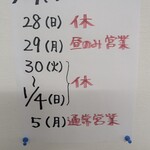 28(日) 休
29(月) 昼のみ営業
30(火)
〜 休
1/4(日)
5(月) 通常営業